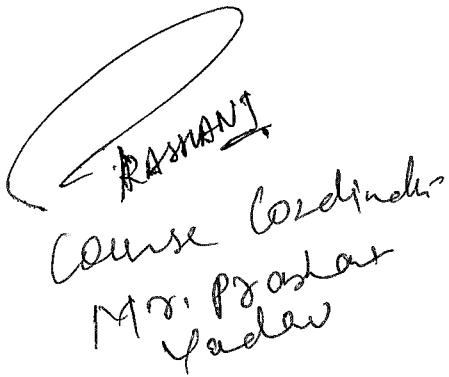 PRASHANT
Course Cordinator
Mr. Prashant
Yadav